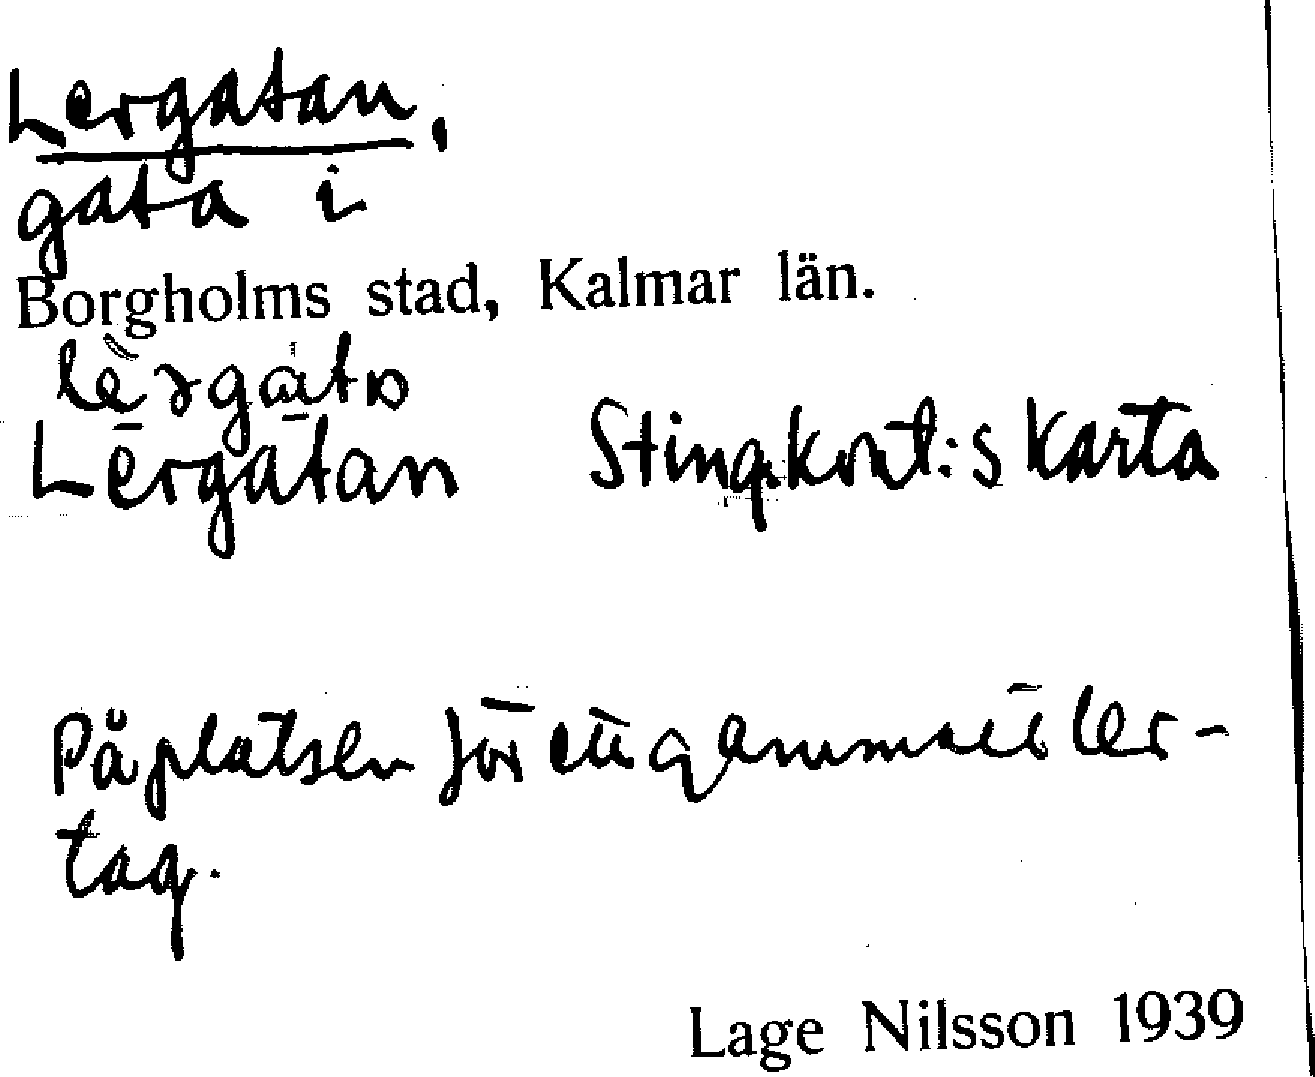 Lergatan,
gata i
Borgholms stad, Kalmar län.
Lērgātan Stingkont:s karta
På platsen för ett gammalt ler-
tag.
Lage Nilsson 1939